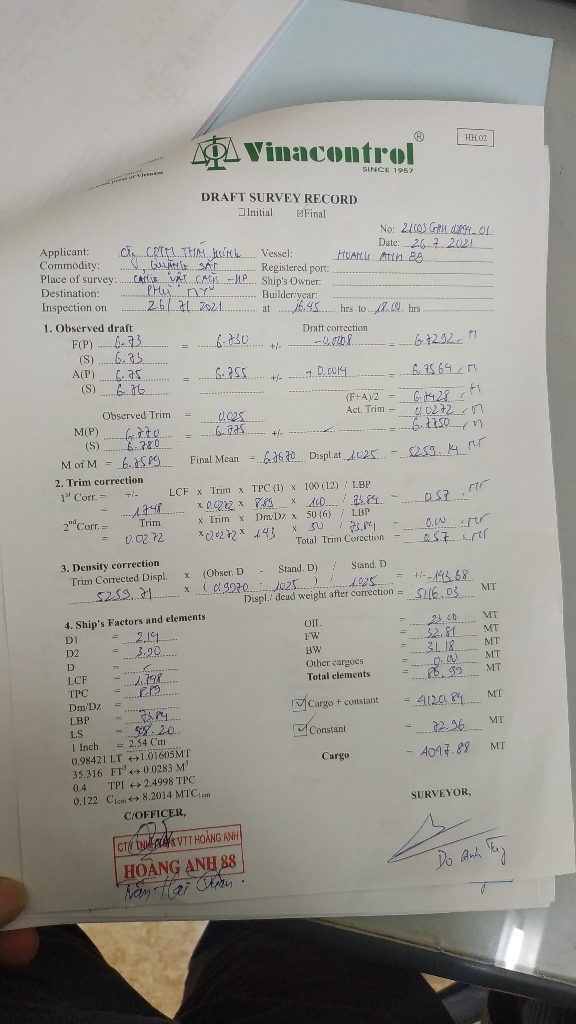 HH.02
Vinacontrol ®
SINCE 1957
DRAFT SURVEY RECORD
☐Initial ☑Final
No:
Date: 26.7.2021
Applicant: Vessel: HOANG ANH 88
Commodity: QUẶNG SẮT Registered port:
Place of survey: CẢNG VẬT CÁCH - HP Ship's Owner:
Destination: PHÚ MỸ Builder/year:
Inspection on 26/7/2021 at 16.45 hrs to 18.00 hrs
1. Observed draft Draft correction
F(P) 6.73 = 6.730 +/- -0.0008 = 6.7292 M
(S) 6.73
A(P) 6.75 = 6.755 +/- +0.0014 = 6.7564 M
(S) 6.76
(F+A)/2 = 6.7428 M
Observed Trim = 0.025 Act. Trim = 0.0272 M
M(P) 6.770 = 6.775 +/- = 6.7750 M
(S) 6.780
M of M = 6.7589 Final Mean = 6.7670 Displ.at 1.025 = 5259.14 MT
2. Trim correction
1st Corr. = +/- LCF x Trim x TPC (1) x 100 (12) / LBP
= 1.748 x 0.0272 x 8.89 x 100 / 73.84 = 0.57 MT
2nd Corr. = Trim x Trim x Dm/Dz x 50 (6) / LBP
= 0.0272 x 0.0272 x 1.43 x 50 / 73.84 = 0.00 MT
Total Trim Corection = 0.57 MT
3. Density correction
Trim Corrected Displ. x (Obser. D - Stand. D) / Stand. D
5259.71 x ( 0.9970 - 1.025 ) / 1.025 = +/- -143.68
Displ./ dead weight after correction = 5116.03 MT
4. Ship's Factors and elements
D1 = 2.14 OIL = 23.00 MT
D2 = 3.90 FW = 32.81 MT
D = BW = 31.18 MT
LCF = 1.748 Other cargoes = 0.00 MT
TPC = 8.89 Total elements = 86.99 MT
Dm/Dz =
LBP = 73.84 ☑Cargo + constant = 4120.84 MT
LS = 908.20 ☑Constant = 72.96 MT
1 Inch = 2.54 Cm
0.98421 LT ↔ 1.01605MT Cargo = 4047.88 MT
35.316 FT³ ↔ 0.0283 M³
0.4 TPI ↔ 2.4998 TPC
0.122 C1cm ↔ 8.2014 MTC1cm
C/OFFICER, SURVEYOR,
CTY TNHH &VTT HOÀNG ANH
HOÀNG ANH 88